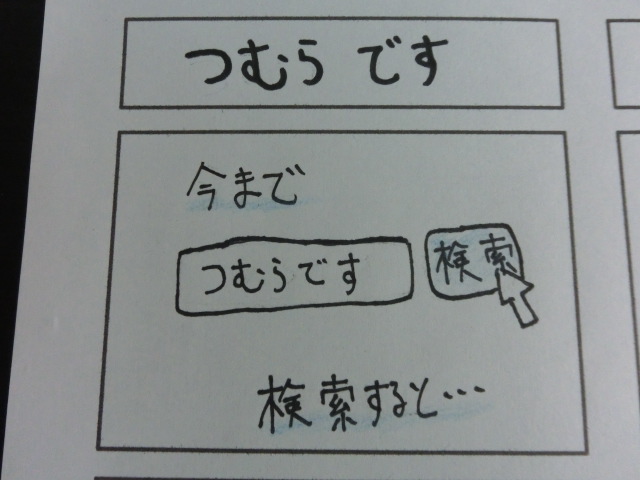 つむらです
今まで
つむらです 検索
検索すると…